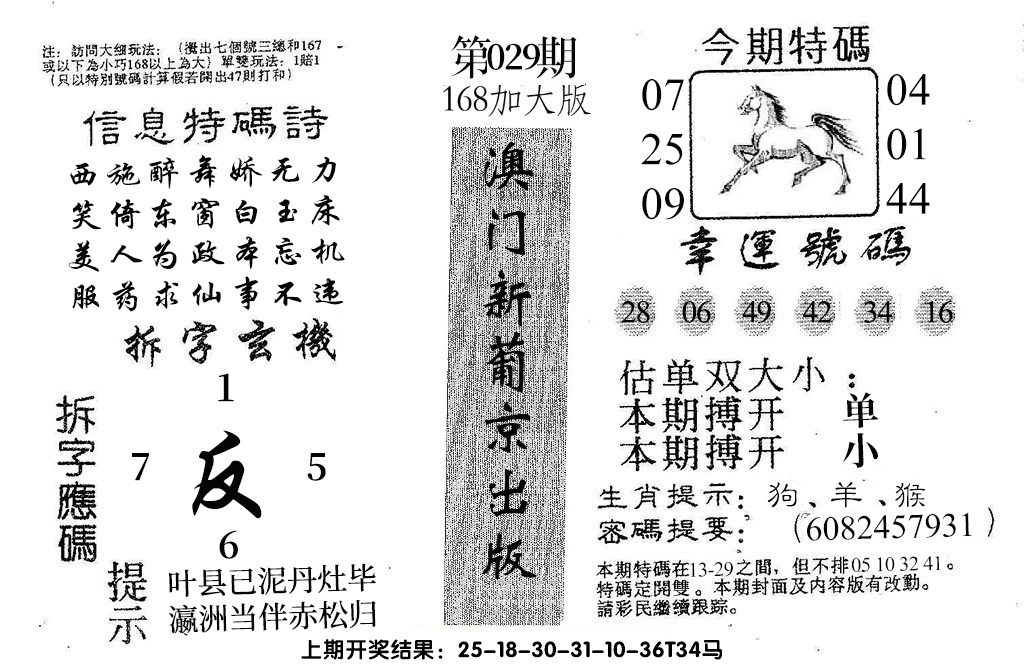 注：訪問大细玩法：（攪出七個號三總和167
或以下為小巧168以上為大）單雙玩法：1賠1
（只以特別號碼計算假若開出47則打和）
信息特碼詩
西施醉舞娇无力
笑倚东窗白玉床
美人为政本忘机
服药求仙事不违
拆字玄機
1
7 反 5
6
拆字應碼
提示
叶县已泥丹灶毕
瀛洲当伴赤松归
第029期
168加大版
澳门新葡京出版
今期特碼
07 04
25 01
09 44
幸運號碼
28 06 49 42 34 16
估单双大小：
本期搏开 单
本期搏开 小
生肖提示：狗、羊、猴
密碼提要：（6082457931）
本期特碼在13-29之間，但不排05 10 32 41。
特碼定開雙。本期封面及内容版有改動。
請彩民繼續跟踪。
上期开奖结果：25-18-30-31-10-36T34马